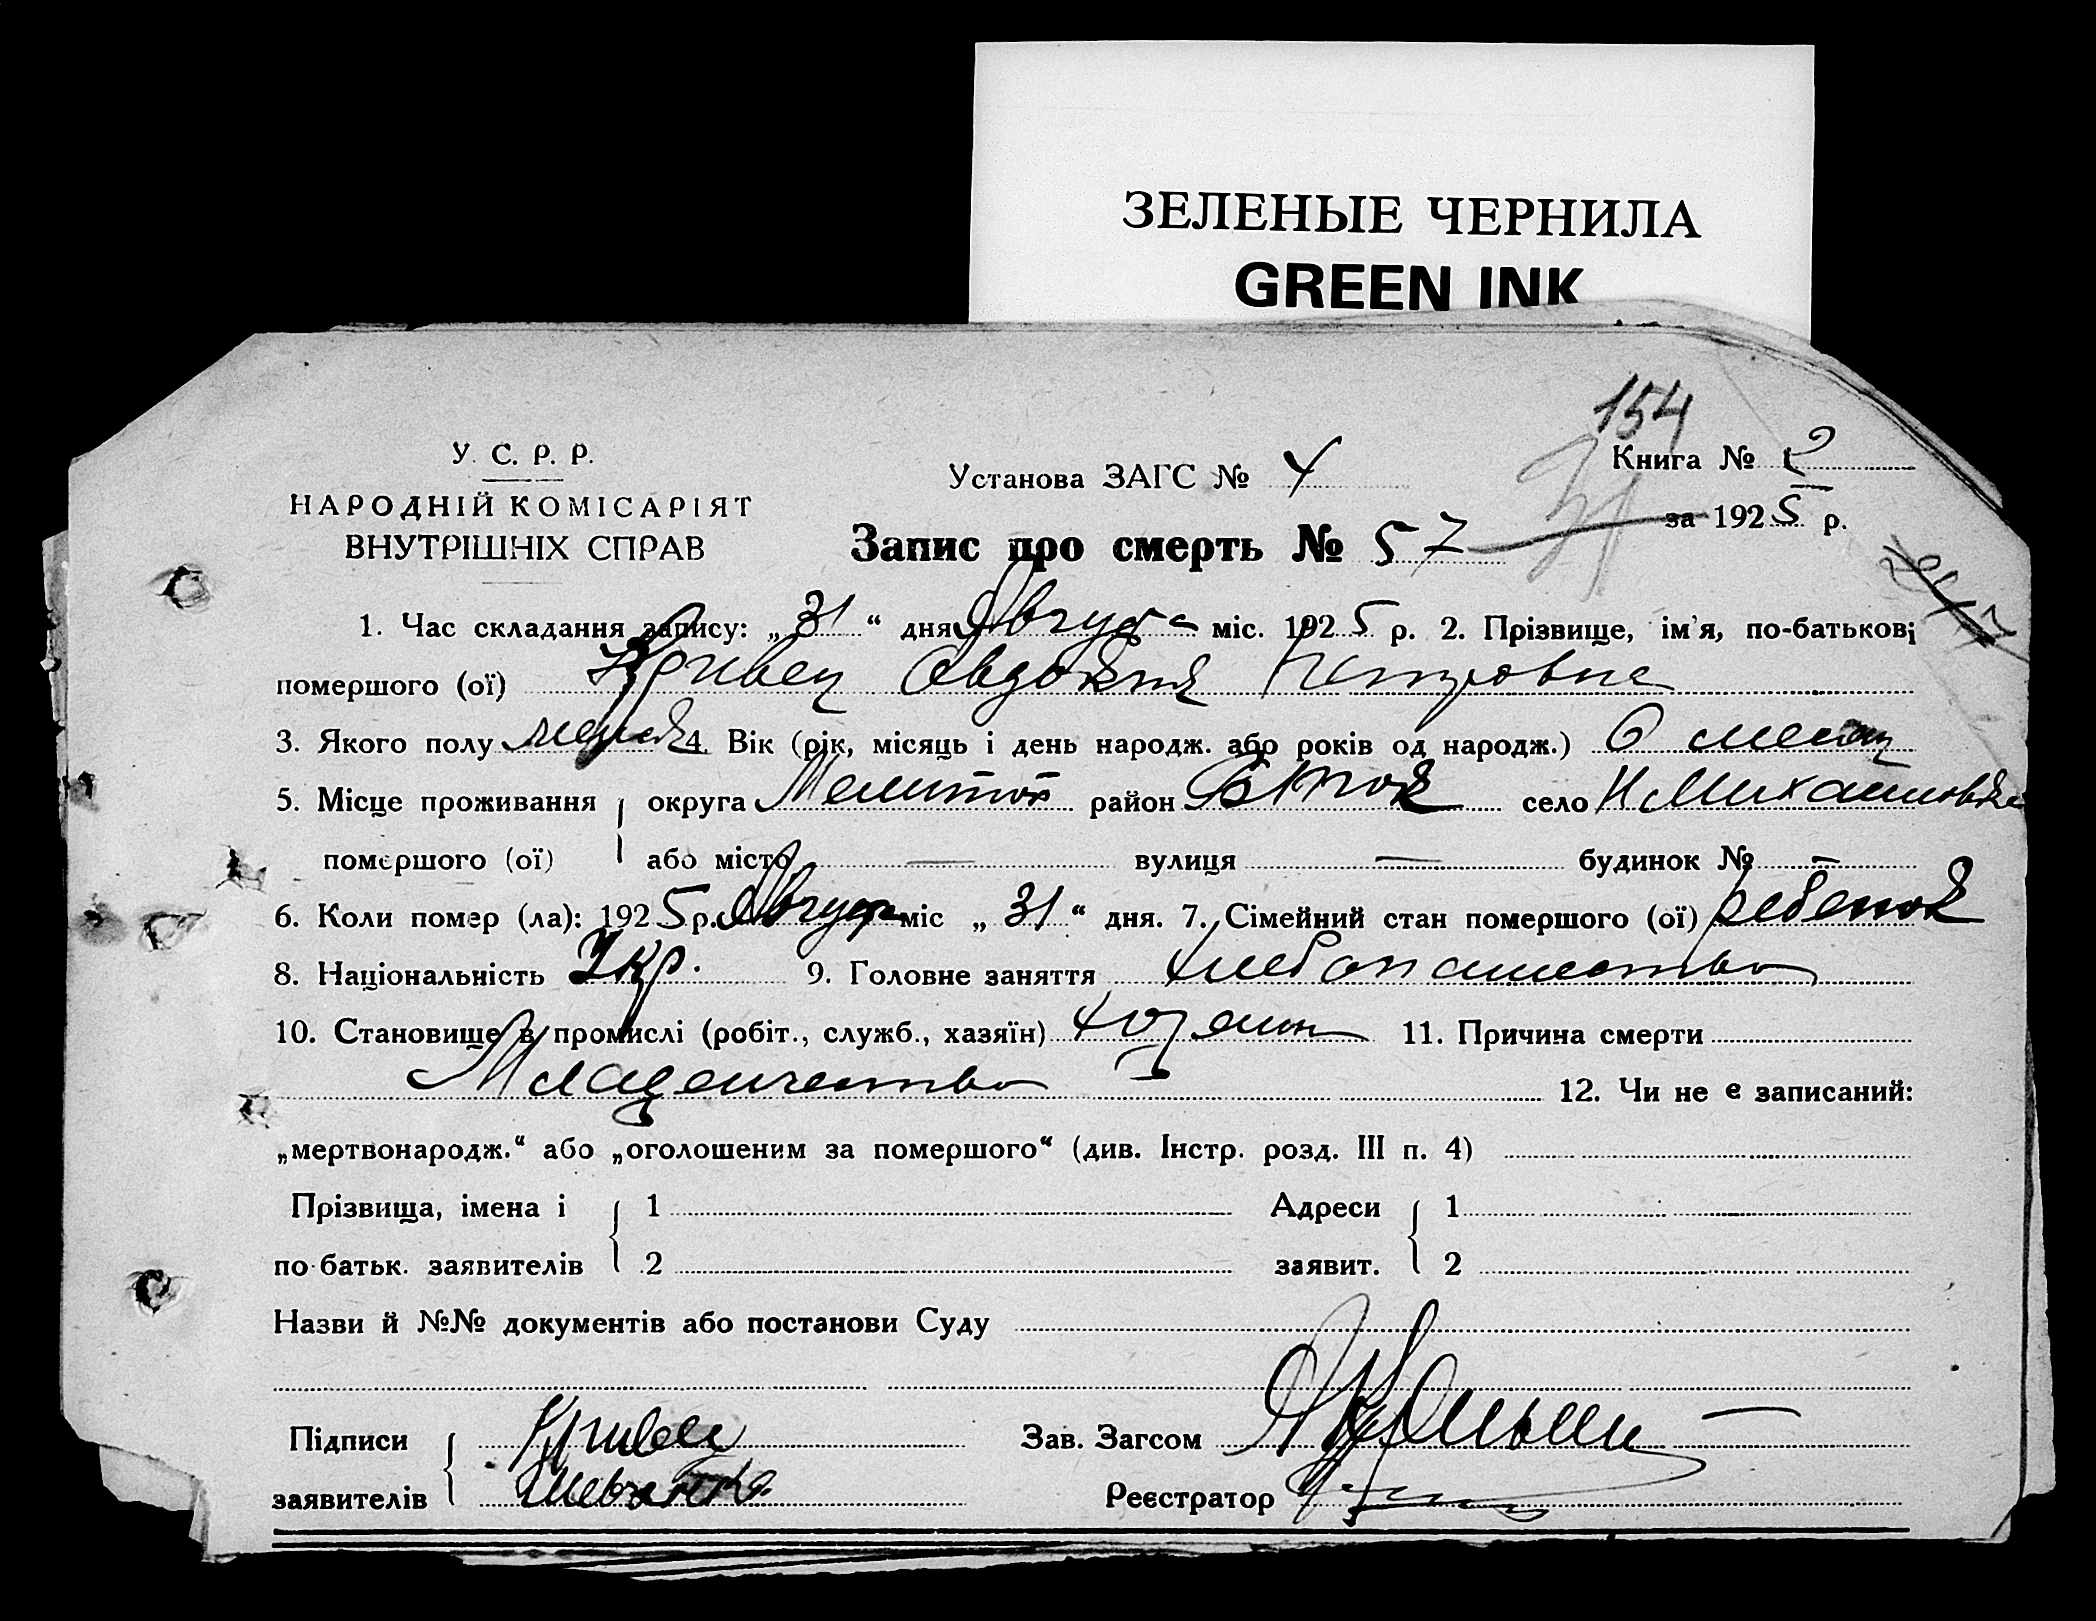 ЗЕЛЕНЫЕ ЧЕРНИЛА
GREEN INK
154
У. С. Р. Р.
НАРОДНІЙ КОМІСАРІЯТ
ВНУТРІШНІХ СПРАВ
Установа ЗАГС № 4
Книга № 2
за 1925 р.
Запис про смерть № 57
1. Час складання запису: „31“ дня Августа міс. 1925 р. 2. Прізвище, ім'я, по-батькові
помершого (ої) Кривец Овдокия Петровна
3. Якого полу 4. Вік (рік, місяць і день народж. або років од народж.) 6 месяц
5. Місце проживання округа Мелитоп район село Н Михайловка
помершого (ої) або місто — вулиця — будинок № —
6. Коли помер (ла): 1925 р. Августа міс „31“ дня. 7. Сімейний стан помершого (ої) ребенок
8. Національність Укр. 9. Головне заняття хлебопашество
10. Становище в промислі (робіт., служб., хазяїн) хозяин 11. Причина смерти
Младенчество 12. Чи не є записаний:
„мертвонародж.“ або „оголошеним за помершого“ (див. Інстр. розд. III п. 4)
Прізвища, імена і 1 Адреси 1
по батьк. заявителів 2 заявит. 2
Назви й №№ документів або постанови Суду
Підписи Кривец Зав. Загсом
заявителів Реєстратор